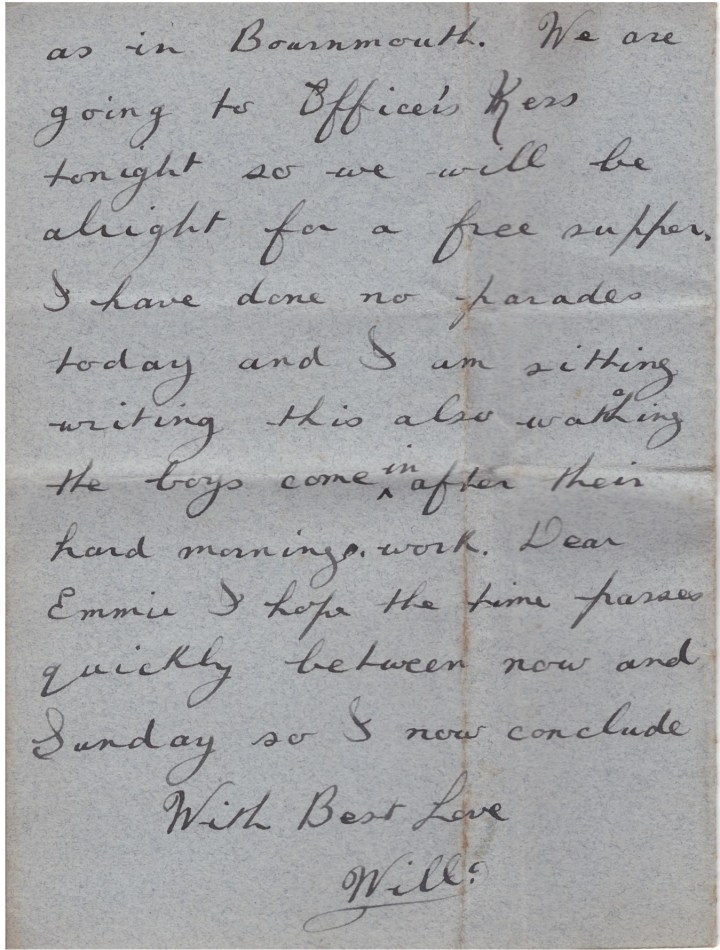 as in Bournmouth. We are
going to Officeis Kers
tonight so we will be
alright for a free supper.
I have done no parades
today and I am sitting
writing this also wathcing
the boys come in after their
hard mornings. work. Dear
Emmie I hope the time passes
quickly between now and
Sunday so I now conclude
With Best Love
Will.